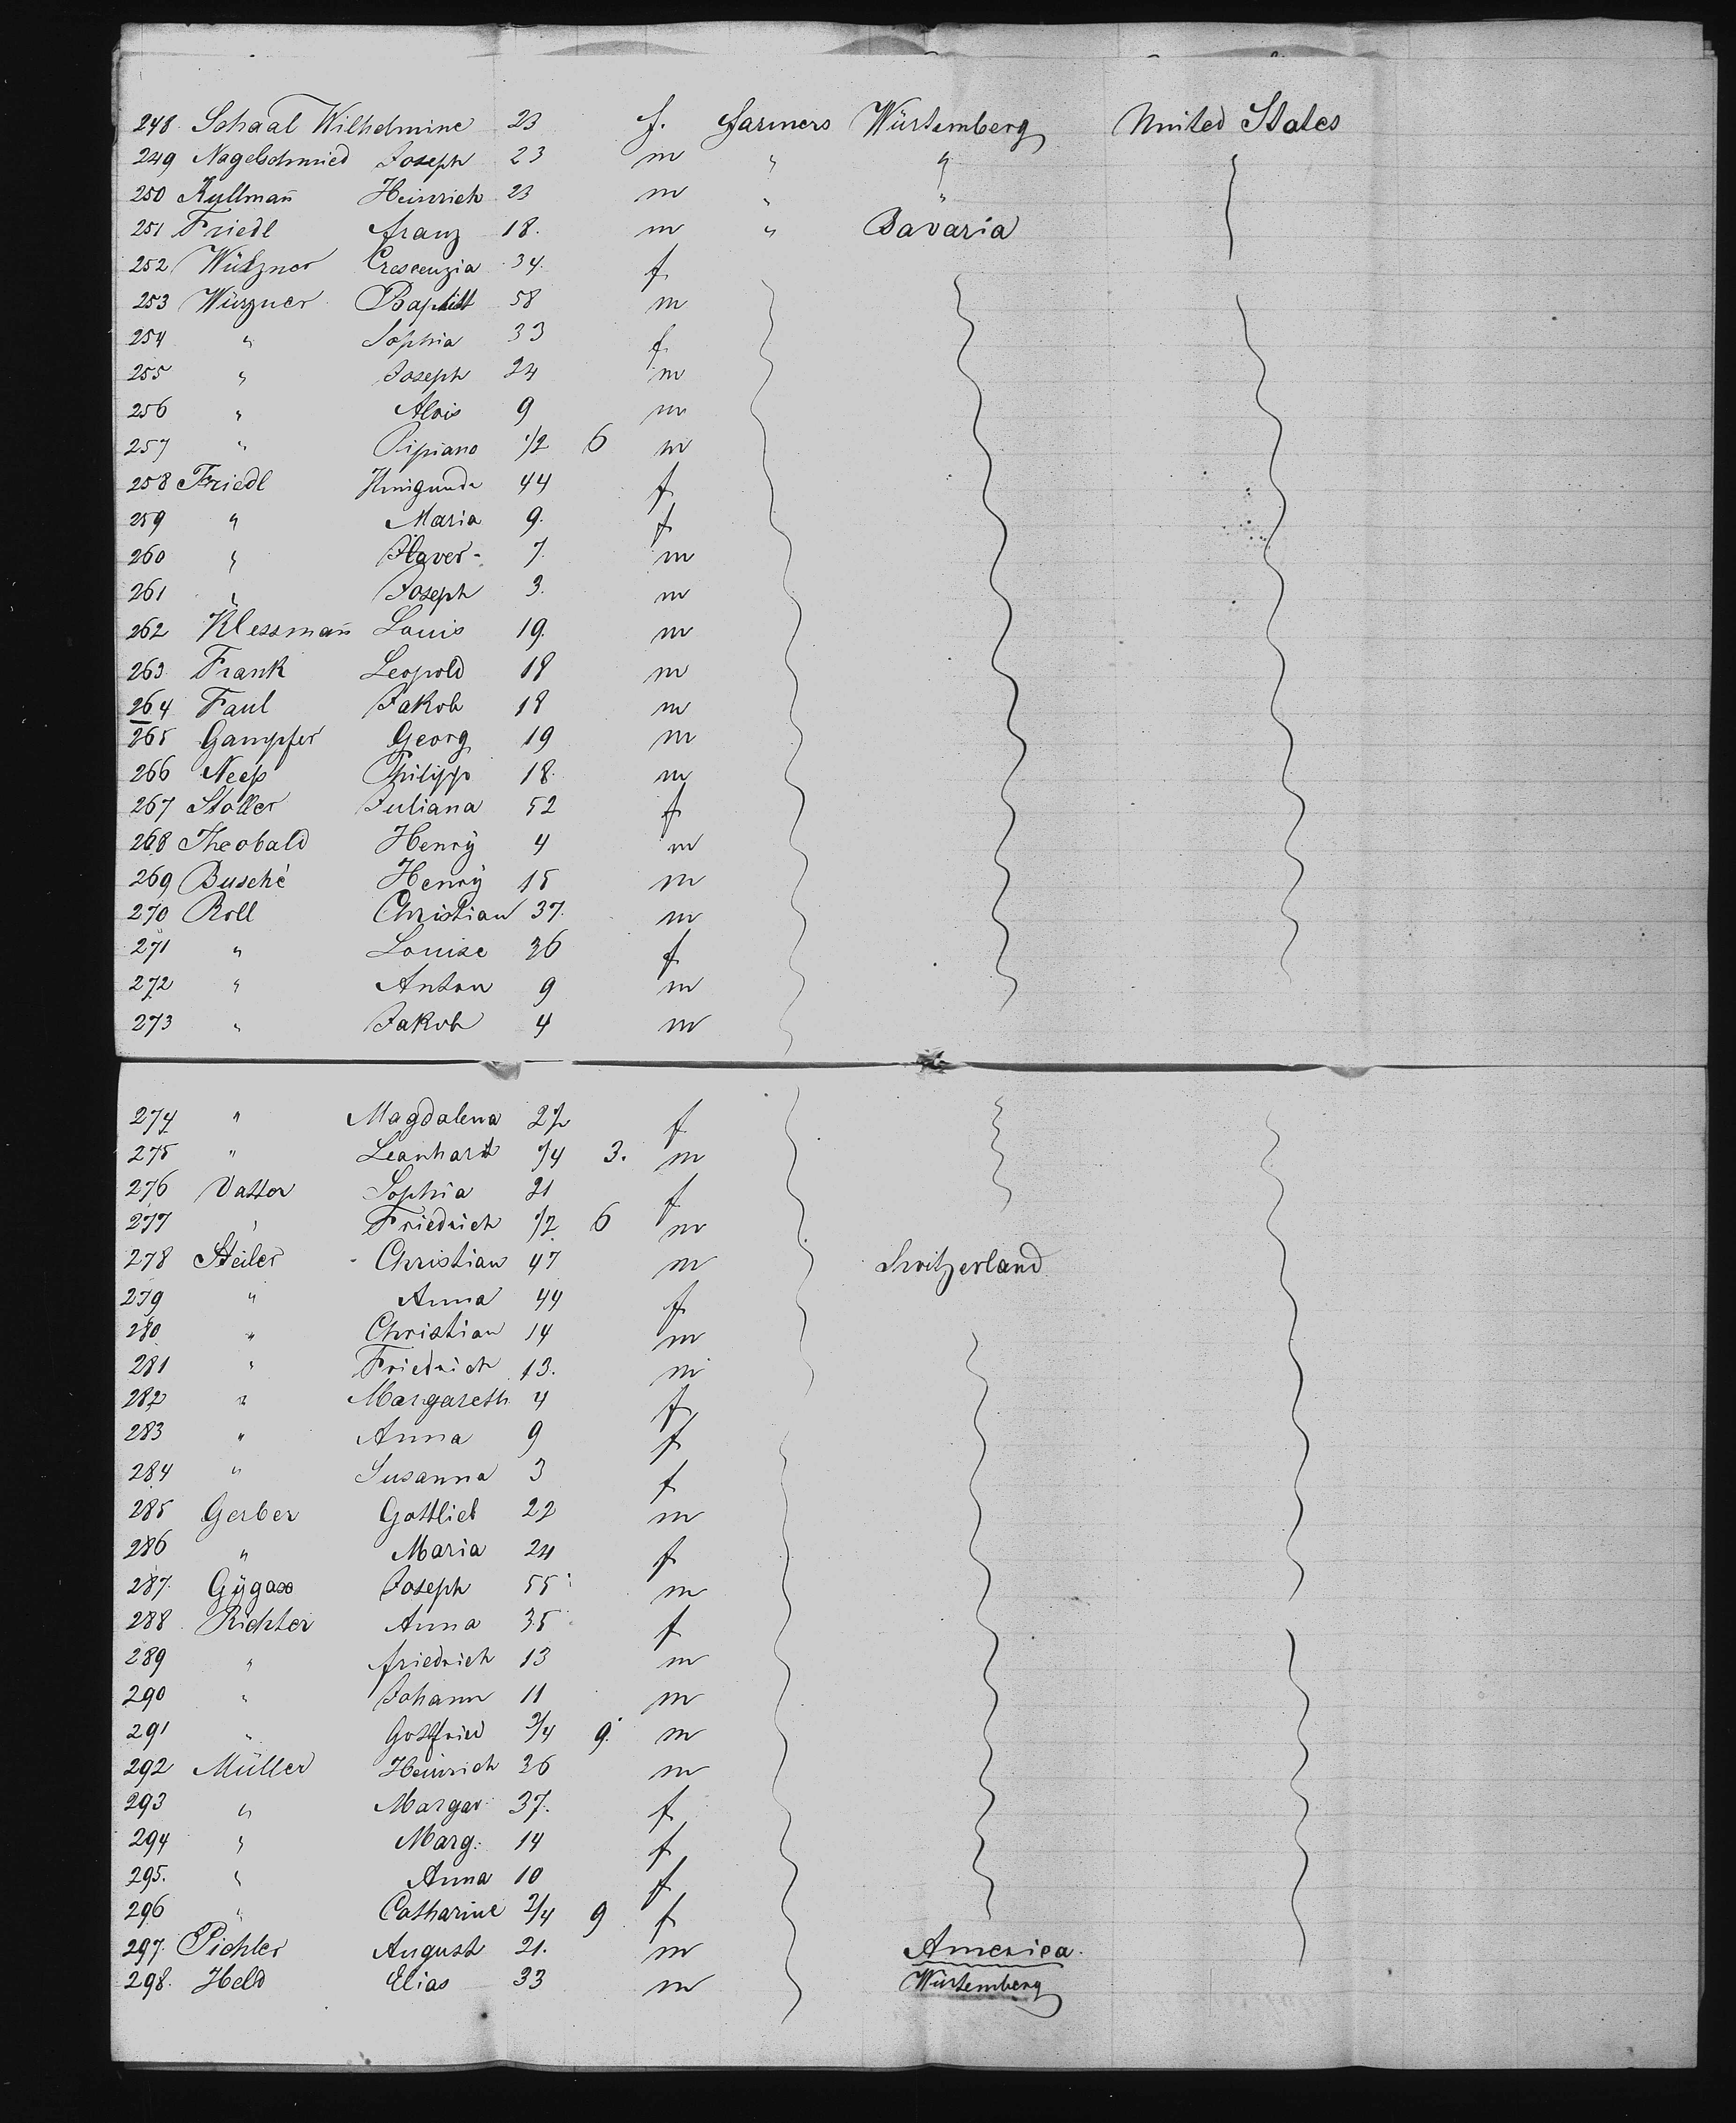 248. Schaal Wilhelmine 23 f. farmers Würtemberg United States
249 Nagelschmied Joseph 23 m " "
250 Kullman̄ Heinrich 23 m " "
251 Friedl franz 18. m " Bavaria
252 Würzner Crescenzia 34. f
253 Würzner Baptist 58 m
254 " Sophia 33 f
255 " Joseph 24 m
256 " Alois 9 m
257 " 1/2 6 m
258 Friedl Kunigunda 44 f
259 " Maria 9. f
260 " Xaver - 7. m
261 " Joseph 3. m
262 Klessman̄ Louis 19. m
263 Frank Leopold 18 m
264 Faul Jakob 18 m
265 Gampfer Georg 19 m
266 Neeß Philipp 18. m
267 Stoller Juliana 52 f
268 Theobald Henrÿ 4 m
269 Busché Henrÿ 15 m
270 Roll Christian 37. m
271 " Louise 36 f
272 " Anton 9 m
273 " Jakob 4 m
274 " Magdalena f
275 " Leonhard 1/4 3. m
276 Vatter Sophia 21 f
277 " Friedrich 1/2 6 m
278 Steiler Christian 47 m Switzerland
279 " Anna 44 f
280 " Christian 14 m
281 " Friedrich 13. m
282 " Margareth 4 f
283 " Anna 9 f
284 " Susanna 3 f
285 Gerber Gottlieb 22 m
286 " Maria 24 f
287. Gÿgax Joseph 55 m
288 Richter Anna 35 f
289 " friedrich 13 m
290 " Johann 11 m
291 " Gottfried 3/4 9. m
292 Müller Heinrich 36 m
293 " Margar 37. f
294 " Marg. 14 f
295. " Anna 10 f
296 " Catharine 3/4 9 f
297. Pichler August 21. m America.
298. Held Elias 33 m Würtemberg